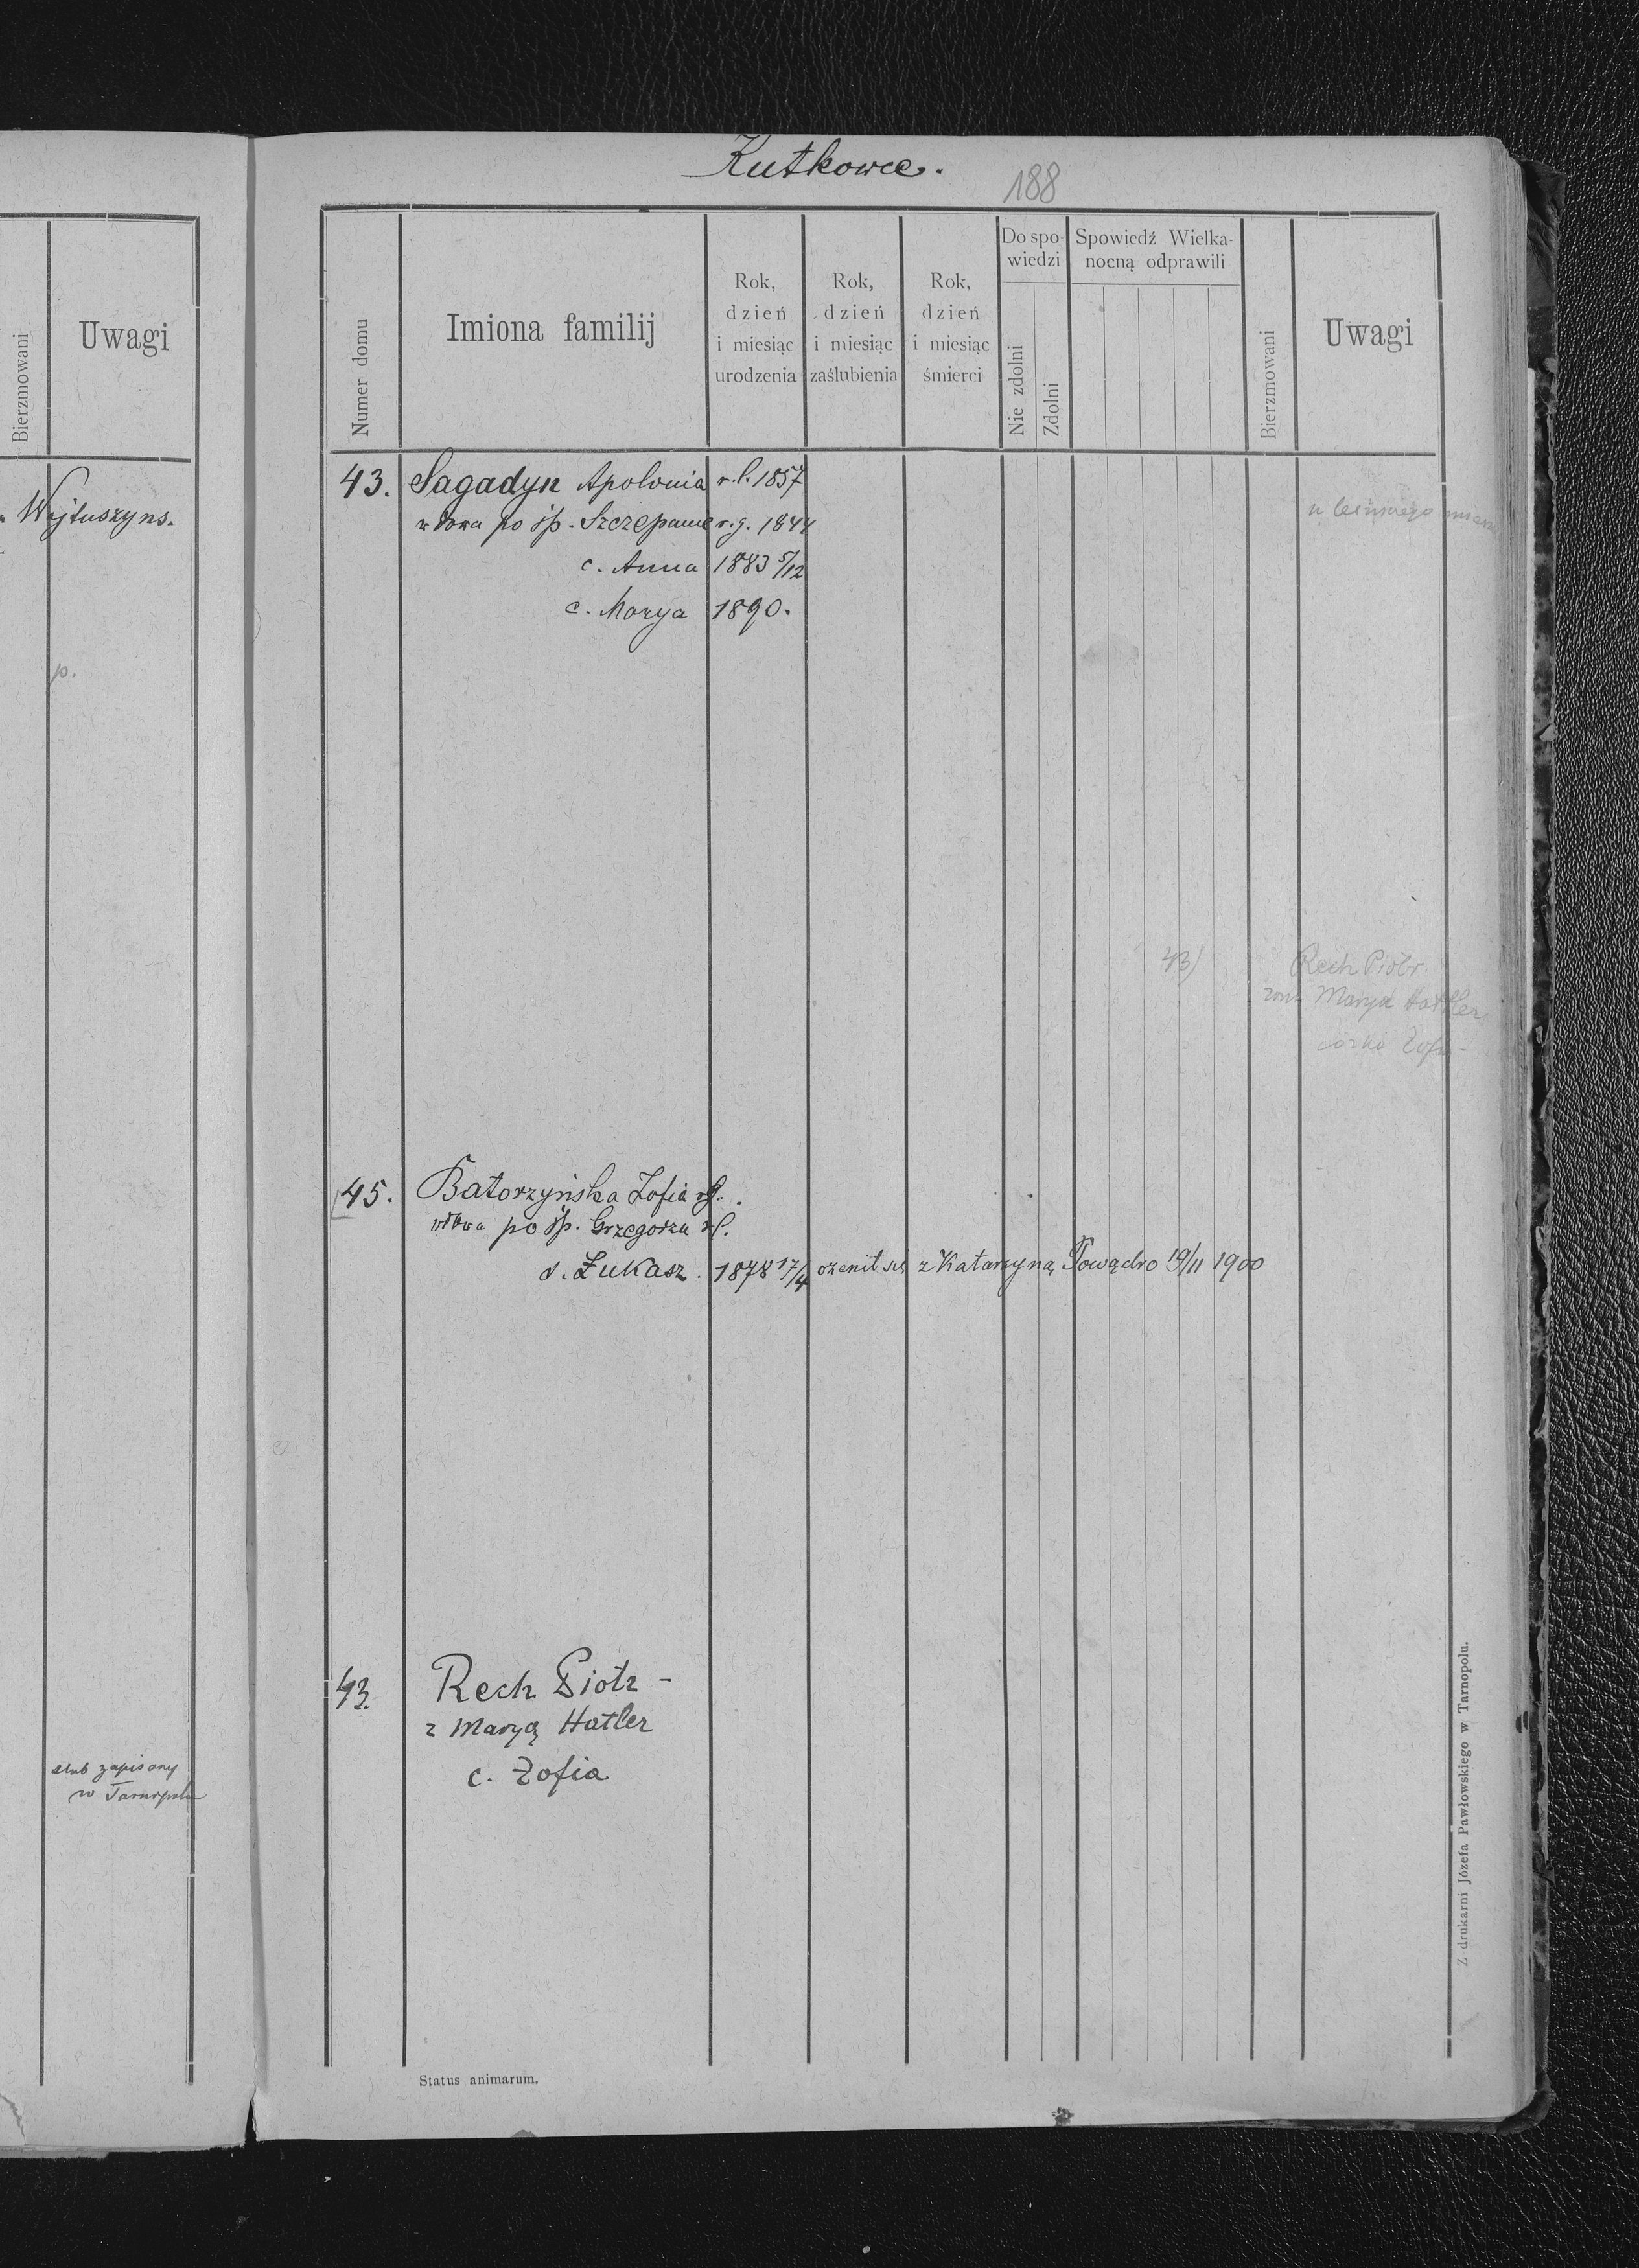 Kutkowce.
188
Bierzmowani
Uwagi
Wojtuszyns.
p.
slub zapisany
w Tarnopolu
Numer domu
Imiona familij
Rok,
dzień
i miesiąc
urodzenia
Rok,
dzień
i miesiąc
zaślubienia
Rok,
dzień
i miesiąc
śmierci
Do spo-
wiedzi
Nie zdolni
Zdolni
Spowiedź Wielka-
nocną odprawili
Bierzmowani
Uwagi
43. Sagadyn Apolonia r. l. 1857
wdowa po śp. Szczepanie r. g. 1844
c. Anna 1883 5/12
c. Marya 1890.
43) Rech Piotr
żona Marya Hatler
córka Zofia
45. Batorzyńska Zofia rg.
wdowa po śp. Grzegorzu rl.
s. Łukasz. 1878 17/4 ożenił się z Katarzyną Powądro 19/11 1900
43. Rech Piotr -
z Maryą Hatler
c. Zofia
Status animarum.
Z drukarni Józefa Pawłowskiego w Tarnopolu.